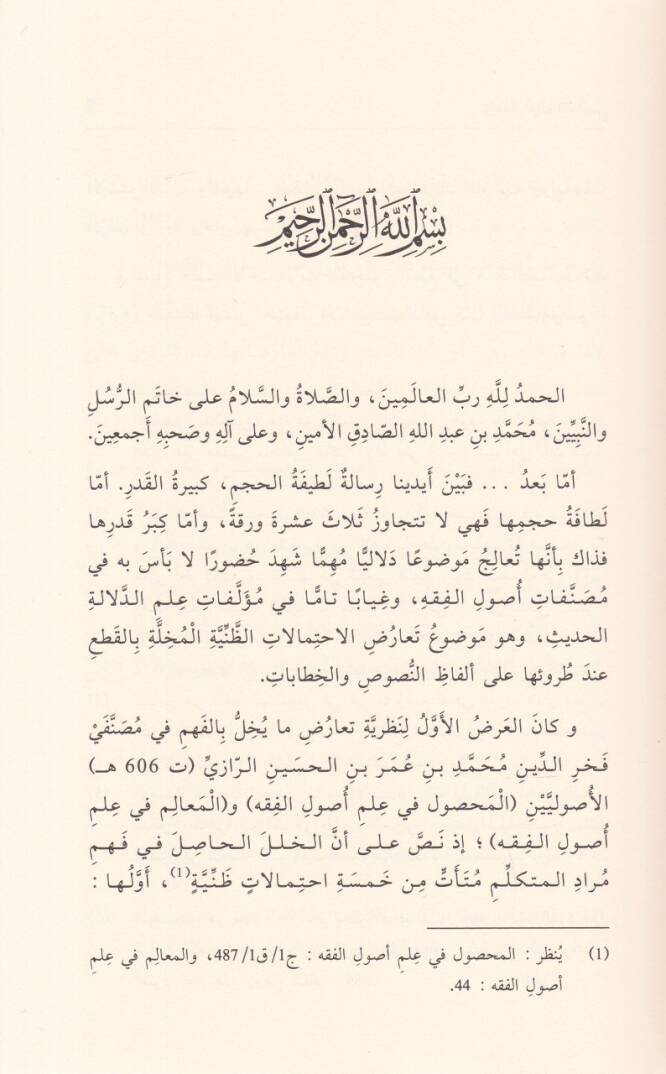 بِسْمِ اللَّهِ الرَّحْمَٰنِ الرَّحِيمِ
الحمدُ لِلَّهِ ربِّ العالَمِينَ، والصَّلاةُ والسَّلامُ على خاتَمِ الرُّسُلِ
والنَّبِيِّينَ، مُحَمَّدِ بنِ عبدِ اللهِ الصّادِقِ الأمينِ، وعلى آلِهِ وصَحبِهِ أجمعِينَ.
أمّا بَعدُ ... فبَيْنَ أَيدينا رِسالةٌ لَطيفَةُ الحجمِ، كبيرةُ القَدرِ. أمّا
لَطافَةُ حجمِها فَهي لا تتجاوزُ ثَلاثَ عشرةَ ورقةً، وأمّا كِبَرُ قَدرِها
فذاك بِأنَّها تُعالِجُ مَوضوعًا دَلاليًّا مُهِمًّا شَهِدَ حُضورًا لا بَأسَ به في
مُصَنَّفاتِ أُصولِ الفِقهِ، وغِيابًا تامًّا في مُؤَلَّفاتِ عِلمِ الدَّلالةِ
الحديثِ، وهو مَوضوعُ تَعارُضِ الاحتِمالاتِ الظَّنِّيَّةِ الْمُخِلَّةِ بِالقَطعِ
عندَ طُروئها على ألفاظِ النُّصوصِ والخِطاباتِ.
و كانَ العَرضُ الأوَّلُ لِنَظريَّةِ تعارُضِ ما يُخِلُّ بِالفَهمِ في مُصَنَّفَيْ
فَخرِ الدِّينِ مُحَمَّدِ بنِ عُمَرَ بنِ الحسَينِ الرّازيِّ (ت 606 هـ)
الأُصوليَّيْنِ (الْمَحصول في عِلمِ أُصولِ الفقه) و(الْمَعالِم في عِلمِ
أُصولِ الفِقه) ؛ إذ نَصَّ على أنَّ الخلَلَ الحاصِلَ في فَهمِ
مُرادِ المتكلِّمِ مُتَأتٍّ مِن خَمسَةِ احتِمالاتٍ ظَنِّيَّةٍ(1)، أَوَّلُها :
(1) يُنظر : المحصول في عِلمِ أصولِ الفقه : ج1/ق1/487، والمعالِم في عِلمِ
أصولِ الفقه : 44.